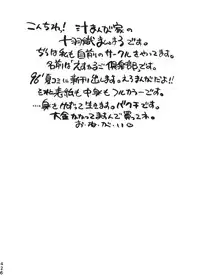 こんちわ! 汁まんが家の
十羽織ましゅまろです。
ちなみ私も自前のサークルをやってます。
名前はえすたるご倶楽部です。
96'夏コミに新刊出します。えろまんがだよ!!
それも表紙も中身もフルカラーです。
……身をけずって生きます。バクチです。
大金かかってますんで買ってネ。
お・ね・が・い♡
426